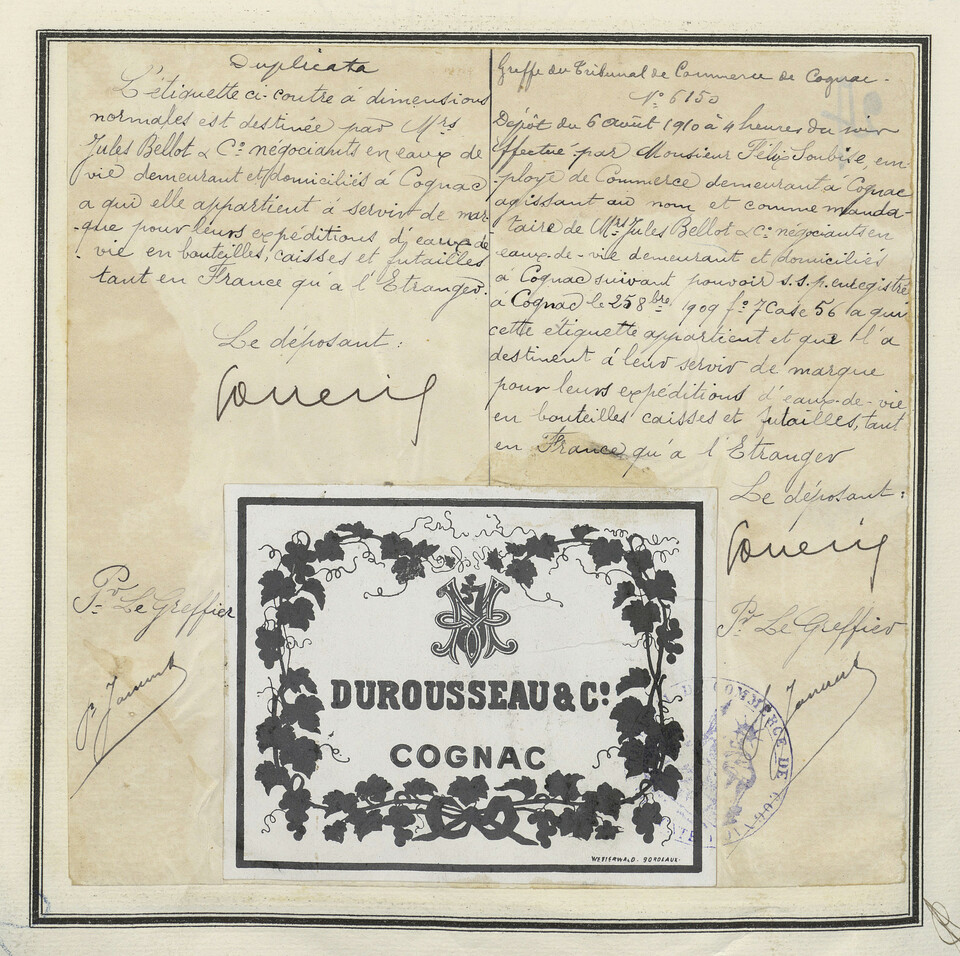 Duplicata
L'étiquette ci-contre à dimensions
normales est destinée par Mrs
Jules Bellot & Co négociants en eaux de
vie demeurant et domiciliés à Cognac
a qui elle appartient à servir de mar-
-que pour leurs expéditions d'eaux de
vie en bouteilles, caisses et futailles
tant en France qu'à l'Etranger.
Le déposant :
Pr Le Greffier
Greffe du Tribunal de Commerce de Cognac -
No 6150
Dépôt du 6 août 1910 à 4 heures du soir
effectué par Monsieur Félix Soubise em-
ployé de Commerce demeurant à Cognac
agissant au nom et comme manda-
-taire de Mrs Jules Bellot & Co négociants en
eaux-de-vie demeurant et domiciliés
à Cognac suivant pouvoir s.s.p. enregistré
à Cognac le 25 8bre 1909 fo 7 Case 56 a qui
cette étiquette appartient et que l'a
destinent à leur servir de marque
pour leurs expéditions d'eaux-de-vie
en bouteilles caisses et futailles, tant
en France qu'à l'Etranger
Le déposant :
Pr Le Greffier
DUROUSSEAU & Co.
COGNAC
WETTERWALD. BORDEAUX.
DE COMMERCE DE COGNAC